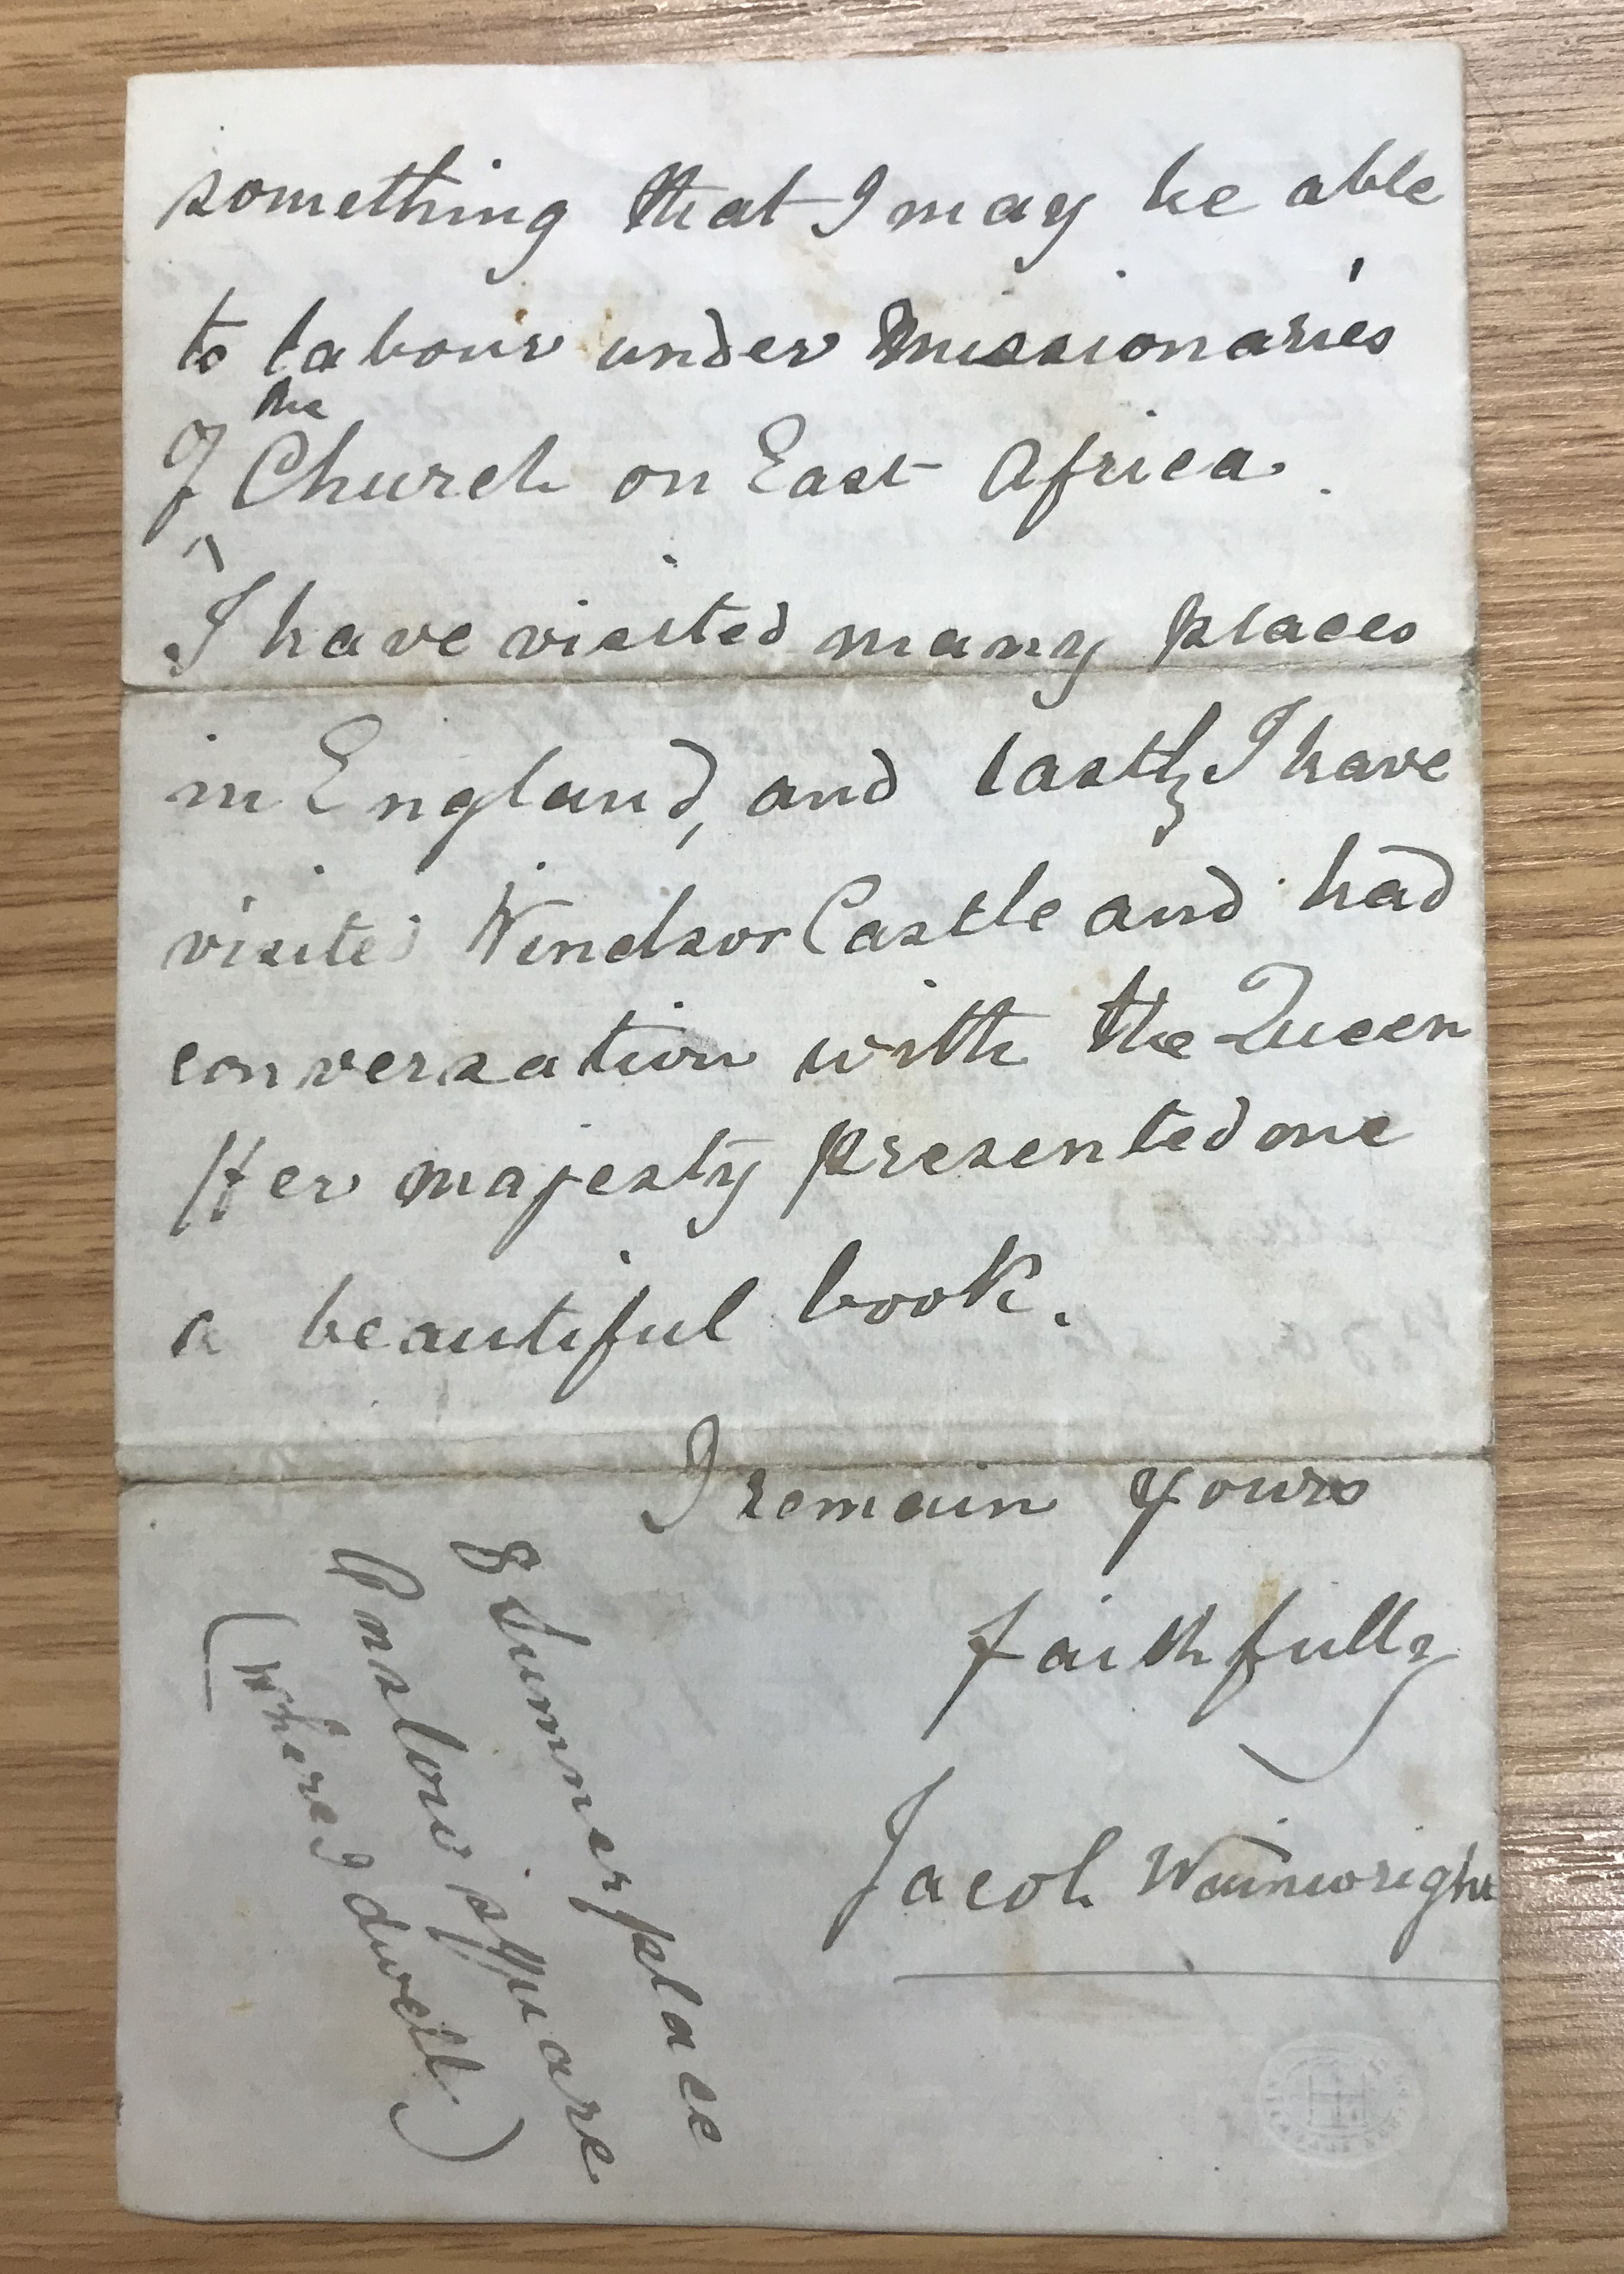 something that I may be able
to labour under missionaries
of the Church on East Africa.
I have visited many places
in England, and lastly I have
visited Windsor Castle and had
conversation with the Queen
Her majesty presented me
a beautiful book.
I remain yours
faithfully
Jacob Wainwright
8 Sumner place
Onslow sqquare
(where I dwell)